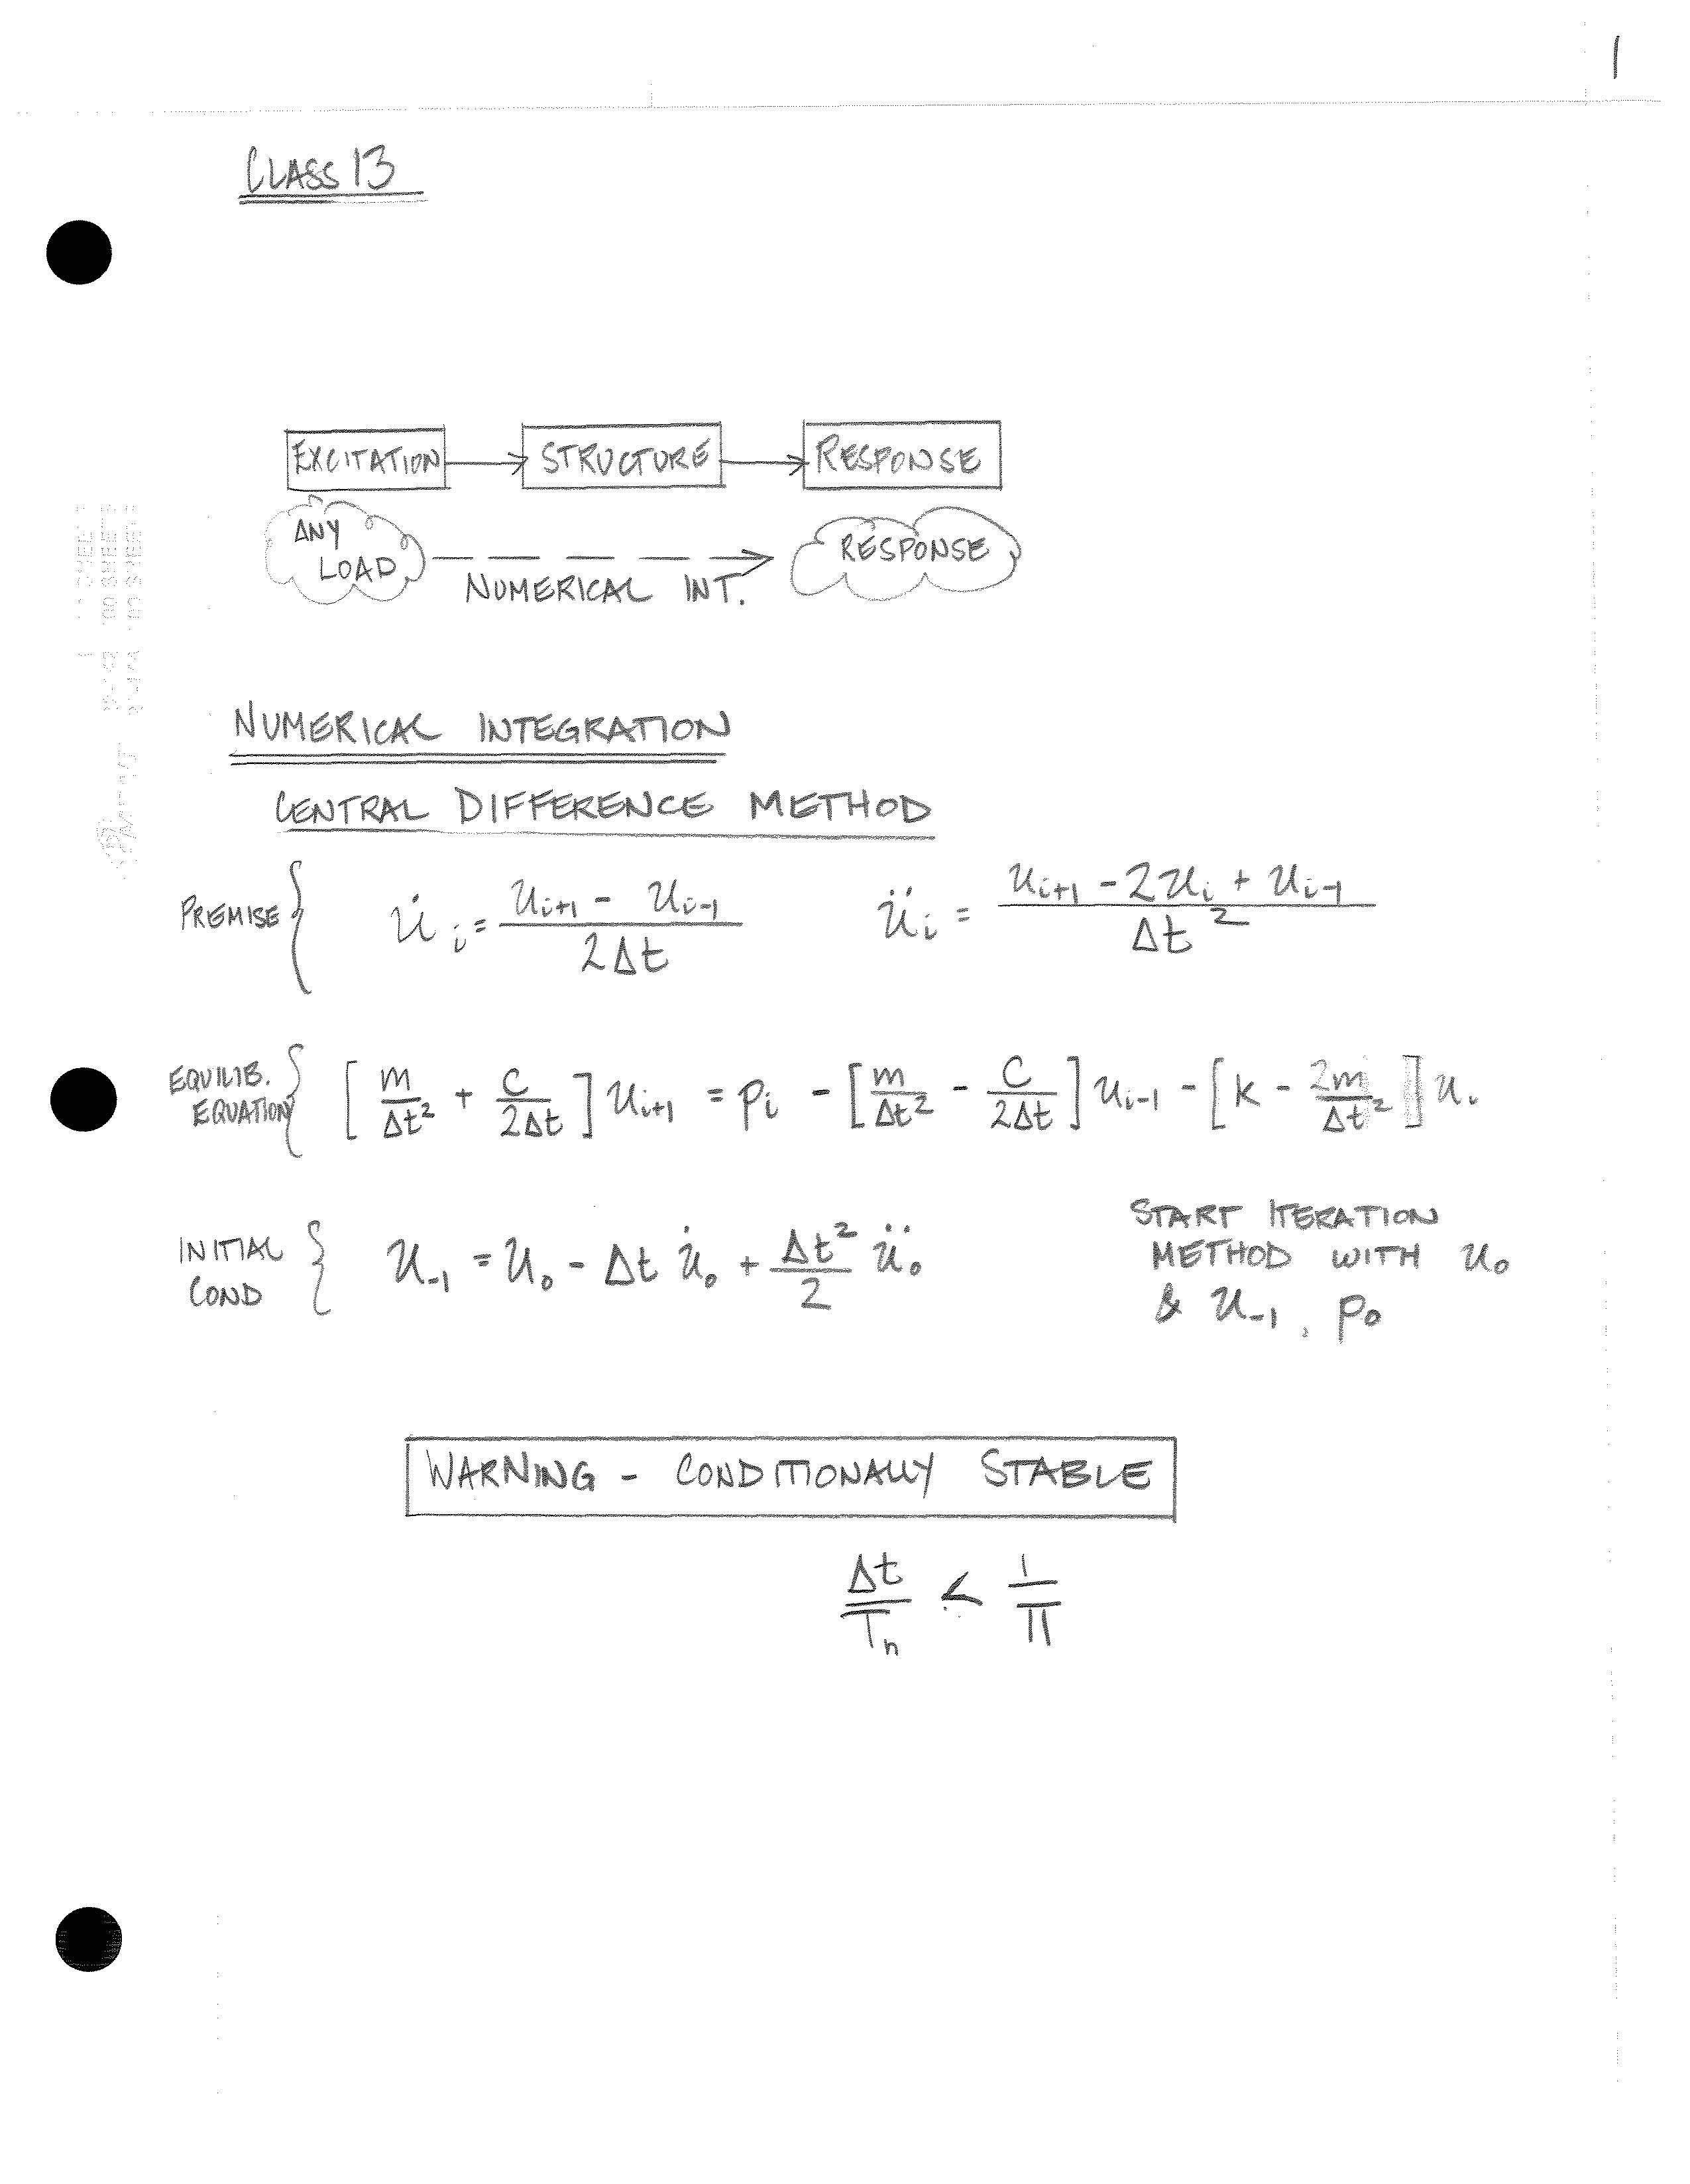 1
CLASS 13
EXCITATION → STRUCTURE → RESPONSE
ANY LOAD – – – → RESPONSE
NUMERICAL INT.
NUMERICAL INTEGRATION
CENTRAL DIFFERENCE METHOD
PREMISE { u̇ᵢ = (uᵢ₊₁ - uᵢ₋₁) / (2Δt)   üᵢ = (uᵢ₊₁ - 2uᵢ + uᵢ₋₁) / Δt²
EQUILIB. EQUATION { [m/Δt² + c/2Δt] uᵢ₊₁ = pᵢ - [m/Δt² - c/2Δt] uᵢ₋₁ - [k - 2m/Δt²] uᵢ
INITIAL COND { u₋₁ = u₀ - Δt u̇₀ + Δt²/2 ü₀
START ITERATION
METHOD WITH u₀
& u₋₁, p₀
WARNING - CONDITIONALLY STABLE
Δt/Tₙ < 1/π